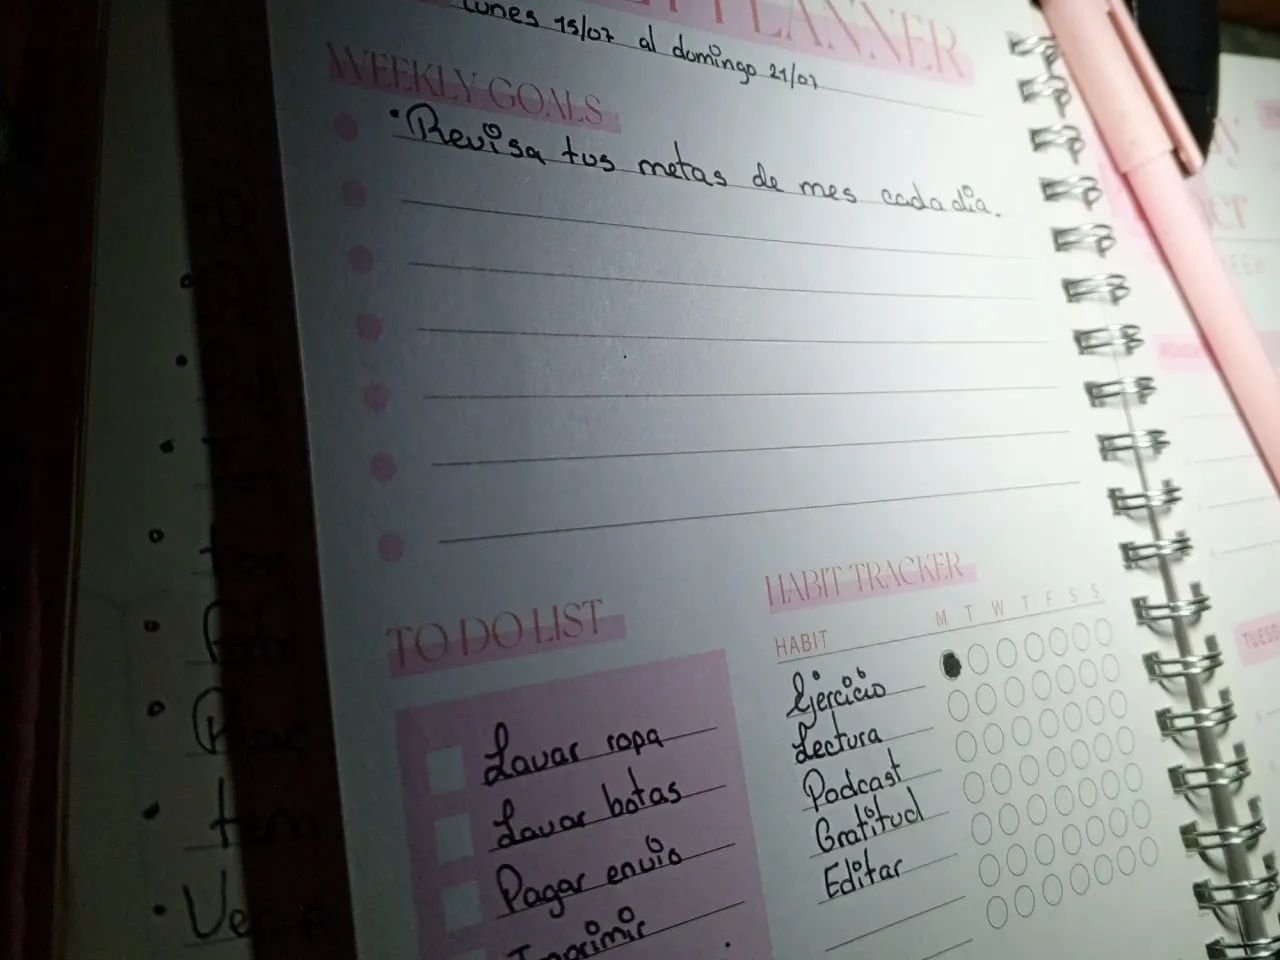 PLANNER
lunes 15/07 al domingo 21/07
WEEKLY GOALS
• Revisa tus metas de mes cada dia.
TO DO LIST
Lavar ropa
Lavar botas
Pagar envio
Imprimir
HABIT TRACKER
HABIT M T W T F S S
Ejercicio
Lectura
Podcast
Gratitud
Editar